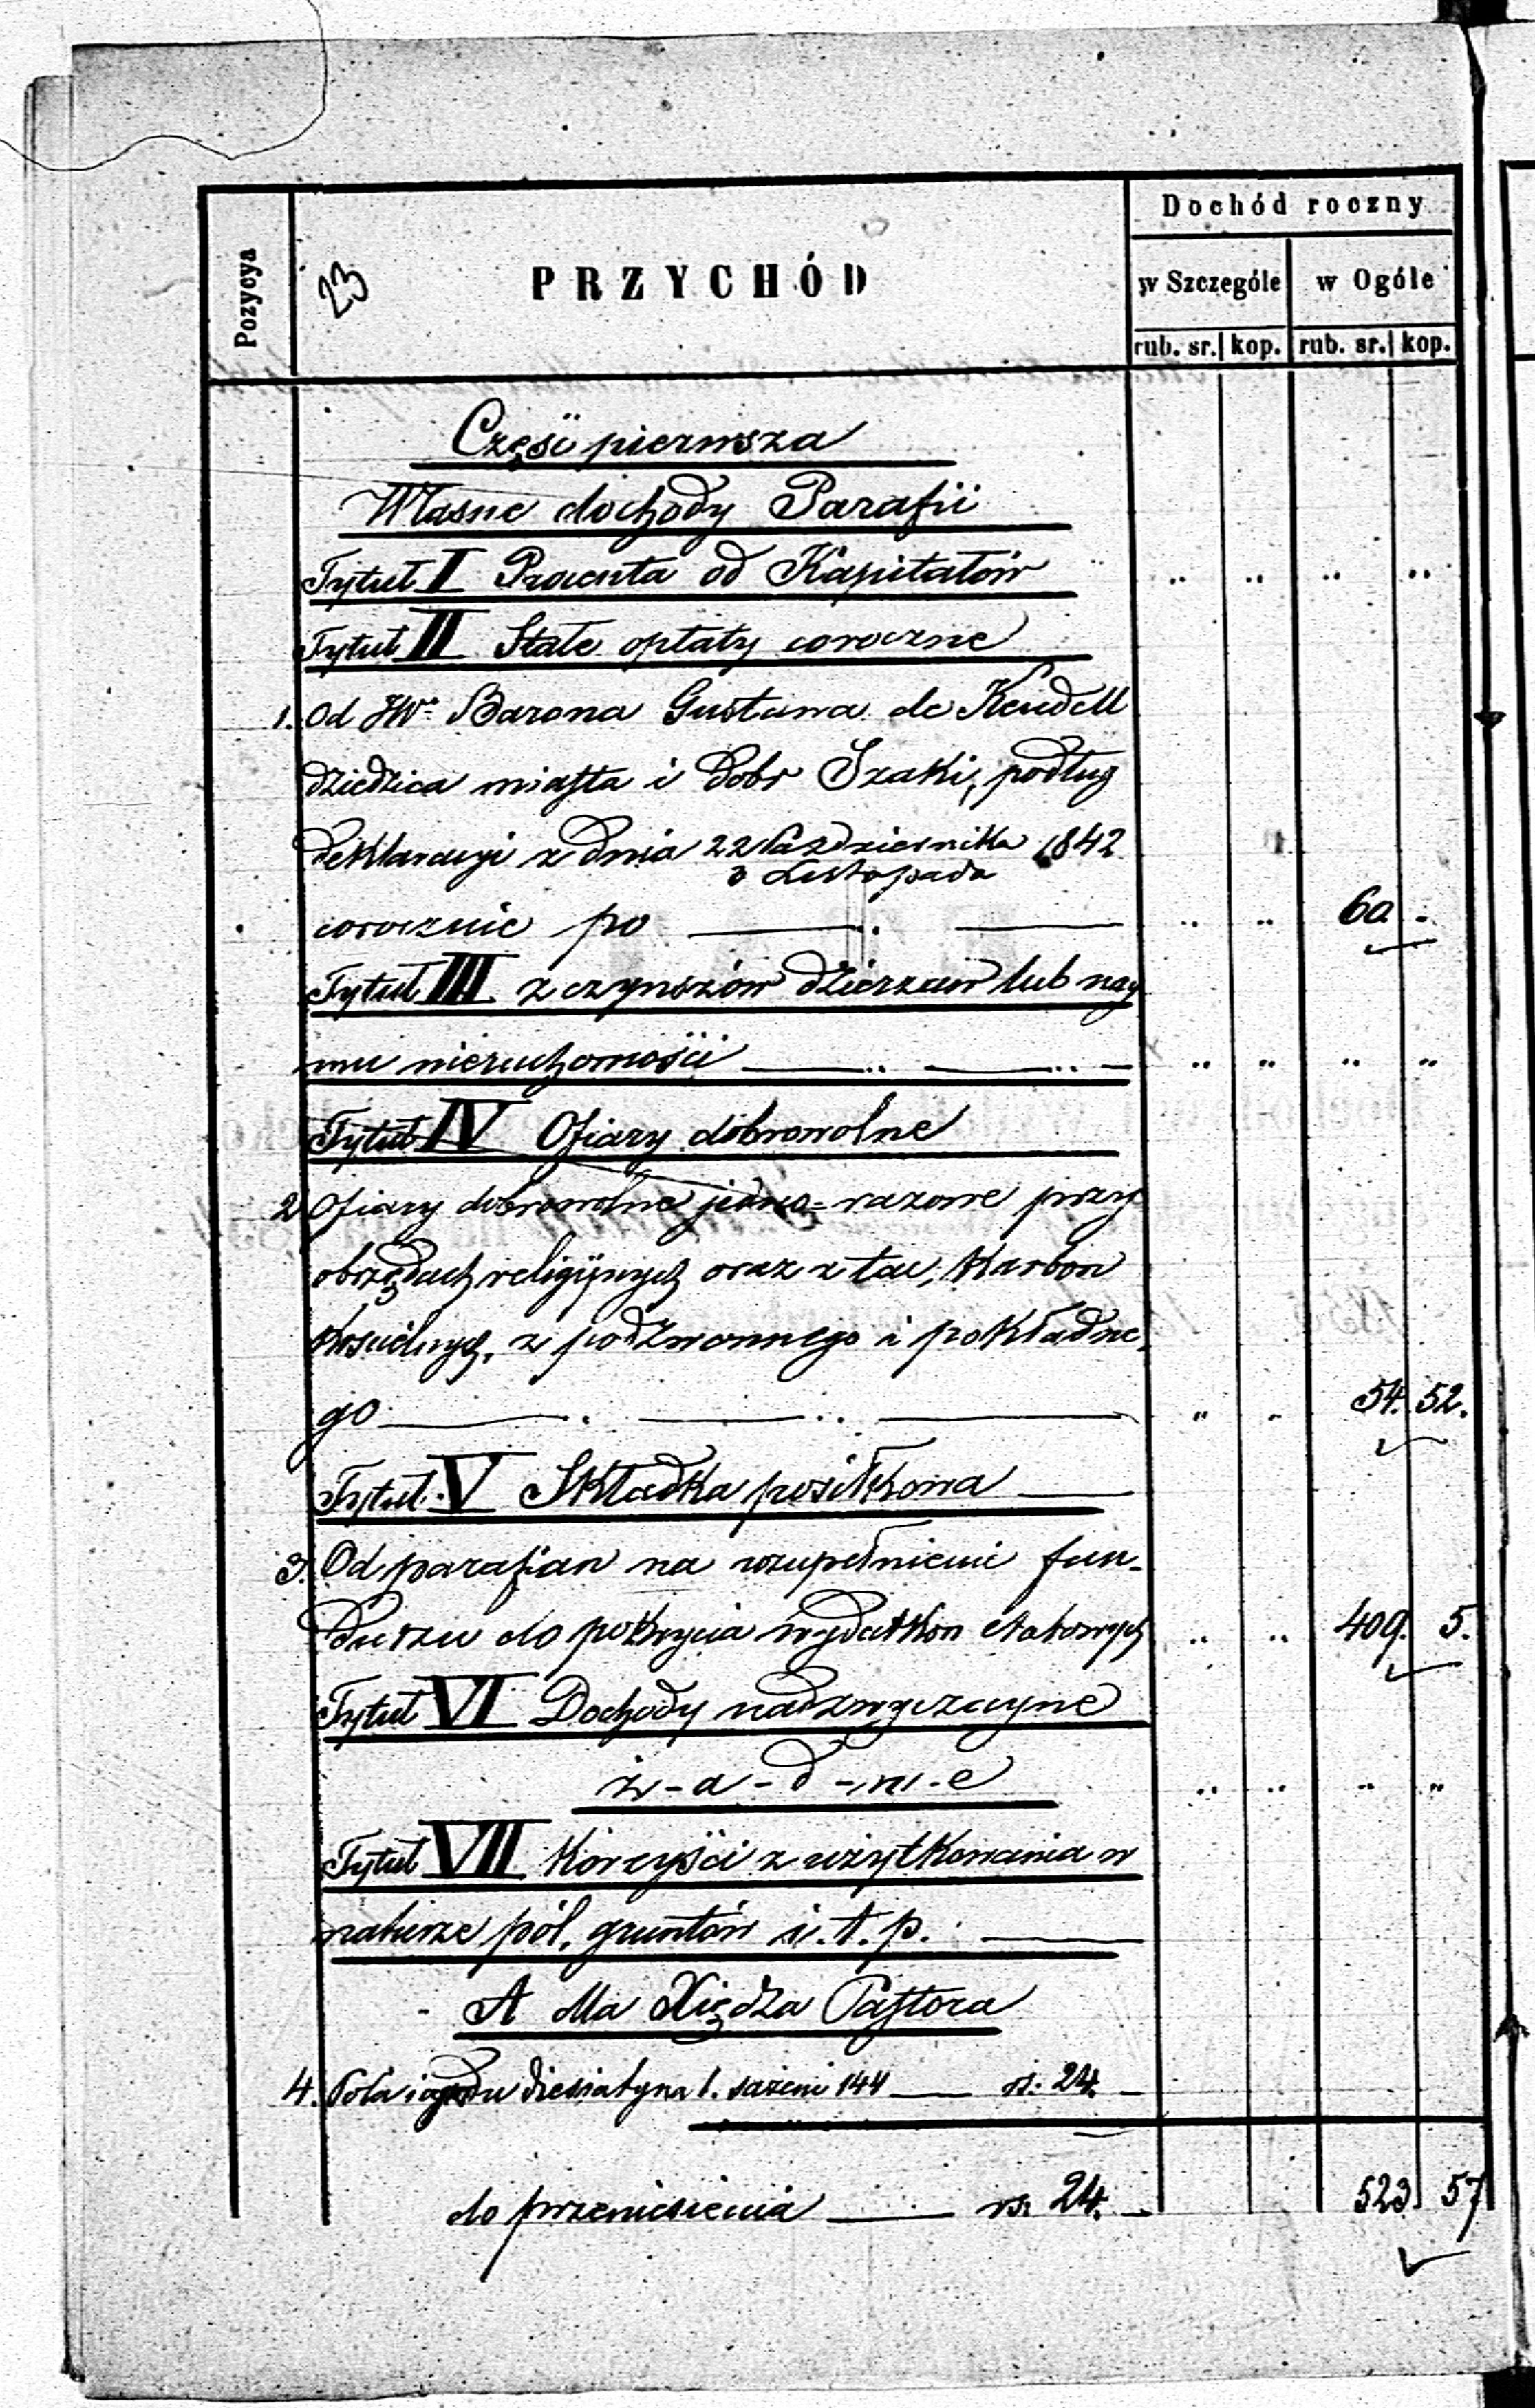 Dochód roczny
Pozycya
23
PRZYCHÓD
w Szczególe w Ogóle
rub. sr. kop. rub. sr. kop.
Część pierwsza
Własne dochody Parafii
Tytuł I Procenta od Kapitałów " " " "
Tytuł II Stałe opłaty coroczne
1. Od JW. Barona Gustawa de Keudell
dziedzica miasta i dobr Szaki, podług
deklaracyi z dnia 22 Października 1842
3 Listopada
corocznie po " " 60 -
Tytuł III z czynszów dzierżaw lub naj
mu nieruchomości " " " "
Tytuł IV Ofiary dobrowolne
2 Ofiary dobrowolne jedno=razowe przy
obrzędach religijnych oraz z tac, Karbon
Kościelnych, z podzwonnego i pokładne,
go " " 54. 52.
Tytuł V Składka posiłkowa
3. Od parafian na uzupełnienie fun-
duszu do pokrycia wydatkow etatowych " " 409. 5.
Tytuł VI Dochody nadzwyczayne
ż-a-d-n-e " " " "
Tytuł VII Korzyści z użytkowania w
naturze pól, gruntów i. t. p.
A dla Xiędza Pastora
4. Pola i ogrodu diesiatyna 1. sażeni 144 rs. 24. -
do przeniesienia rs. 24. - 523. 57